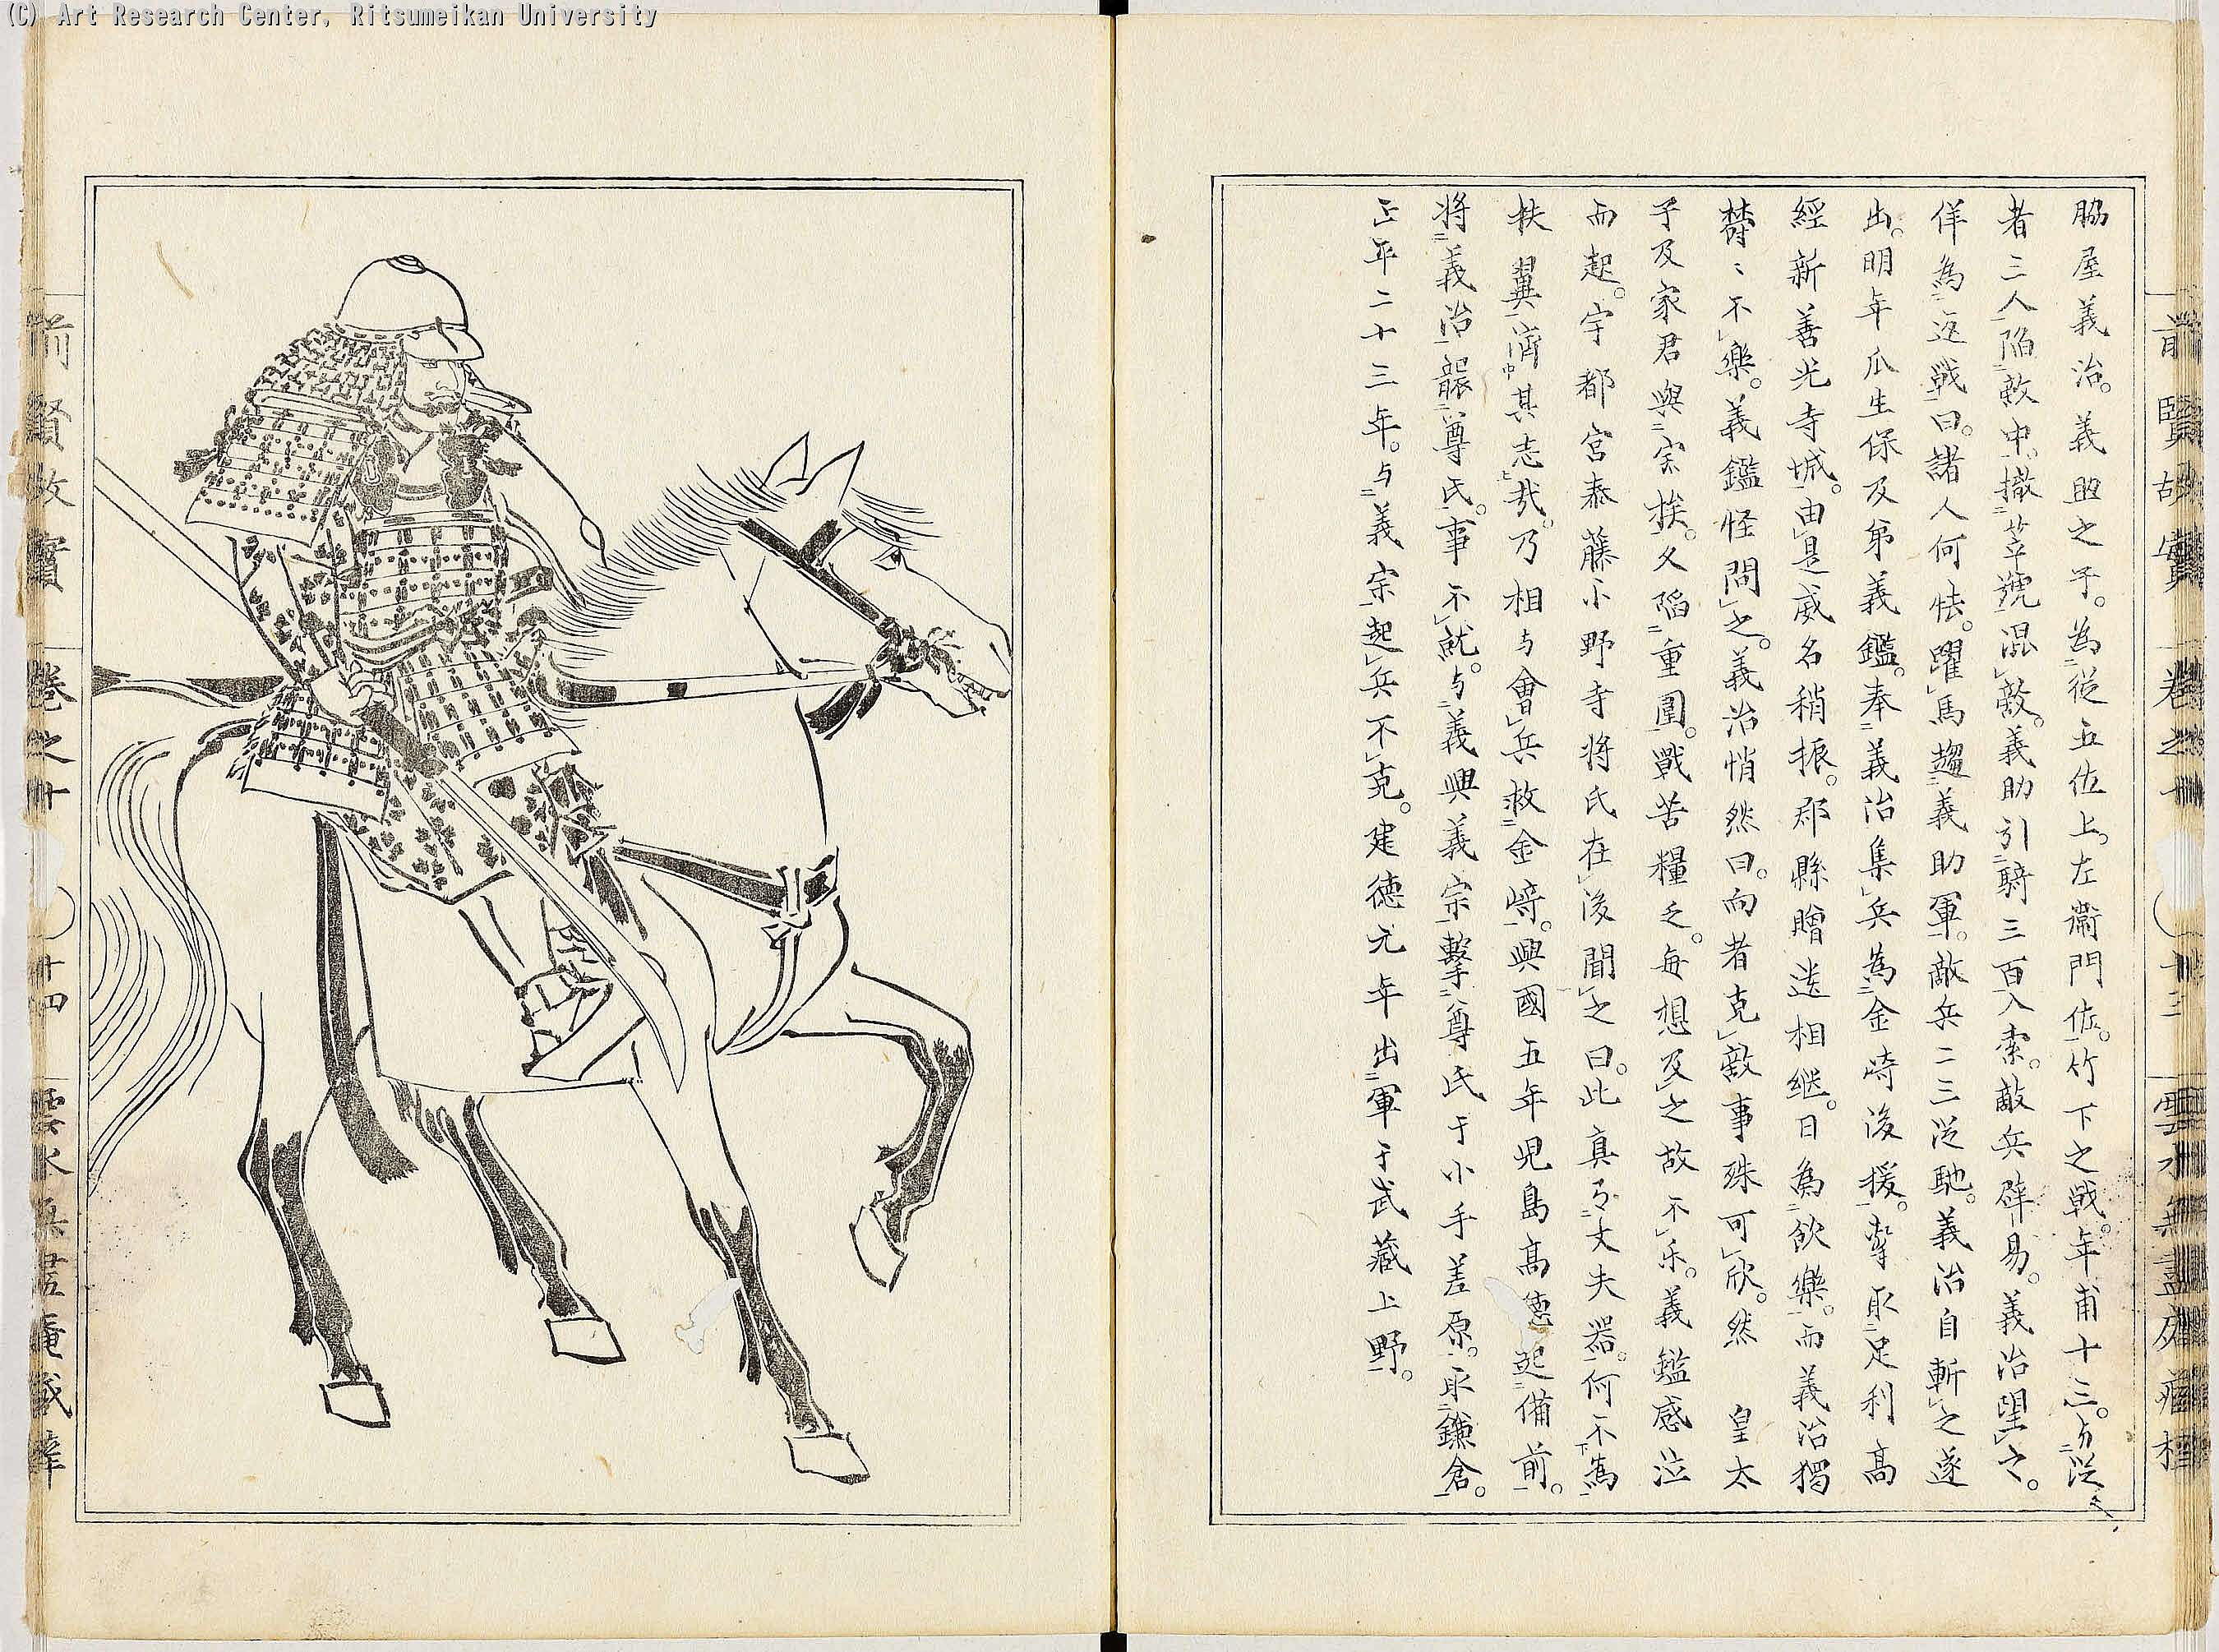 (C) Art Research Center, Ritsumeikan University
脇屋義治。義助之子。為從五位上。左衞門佐。竹下之戰。年甫十三。与從
者三人陷敵中。撤笠號混敵。義助引騎三百入索。敵兵辟易。義治望之。
佯為返戰曰。諸人何怯。躍馬趨義助軍。敵兵二三從馳。義治自斬之遂
出。明年瓜生保及弟義鑑。奉義治集兵為金崎後援。擊取足利高
經新善光寺城。由是威名稍振。郡縣贈遺相継。日為飲樂。而義治獨
欝〻不樂。義鑑怪問之。義治悄然曰。向者克敵事殊可欣。然 皇太
子及家君與宗族。久陷重圍。戰苦糧乏。毎想及之故不乐。義鑑感泣
而起。宇都宮泰藤小野寺将氏在後聞之曰。此真丈夫器。何不為
扶翼濟其志哉。乃相与會兵救金崎。興國五年児島高徳起備前。
将義治襲尊氏。事不就。与義興義宗擊尊氏于小手差原。取鎌倉。
正平二十三年。与義宗起兵不克。建徳元年出軍于武藏上野。
前賢故實 巻之十 十三 雲水無盡庵藏梓
前賢故實 巻之十 十四 雲水無盡庵藏梓